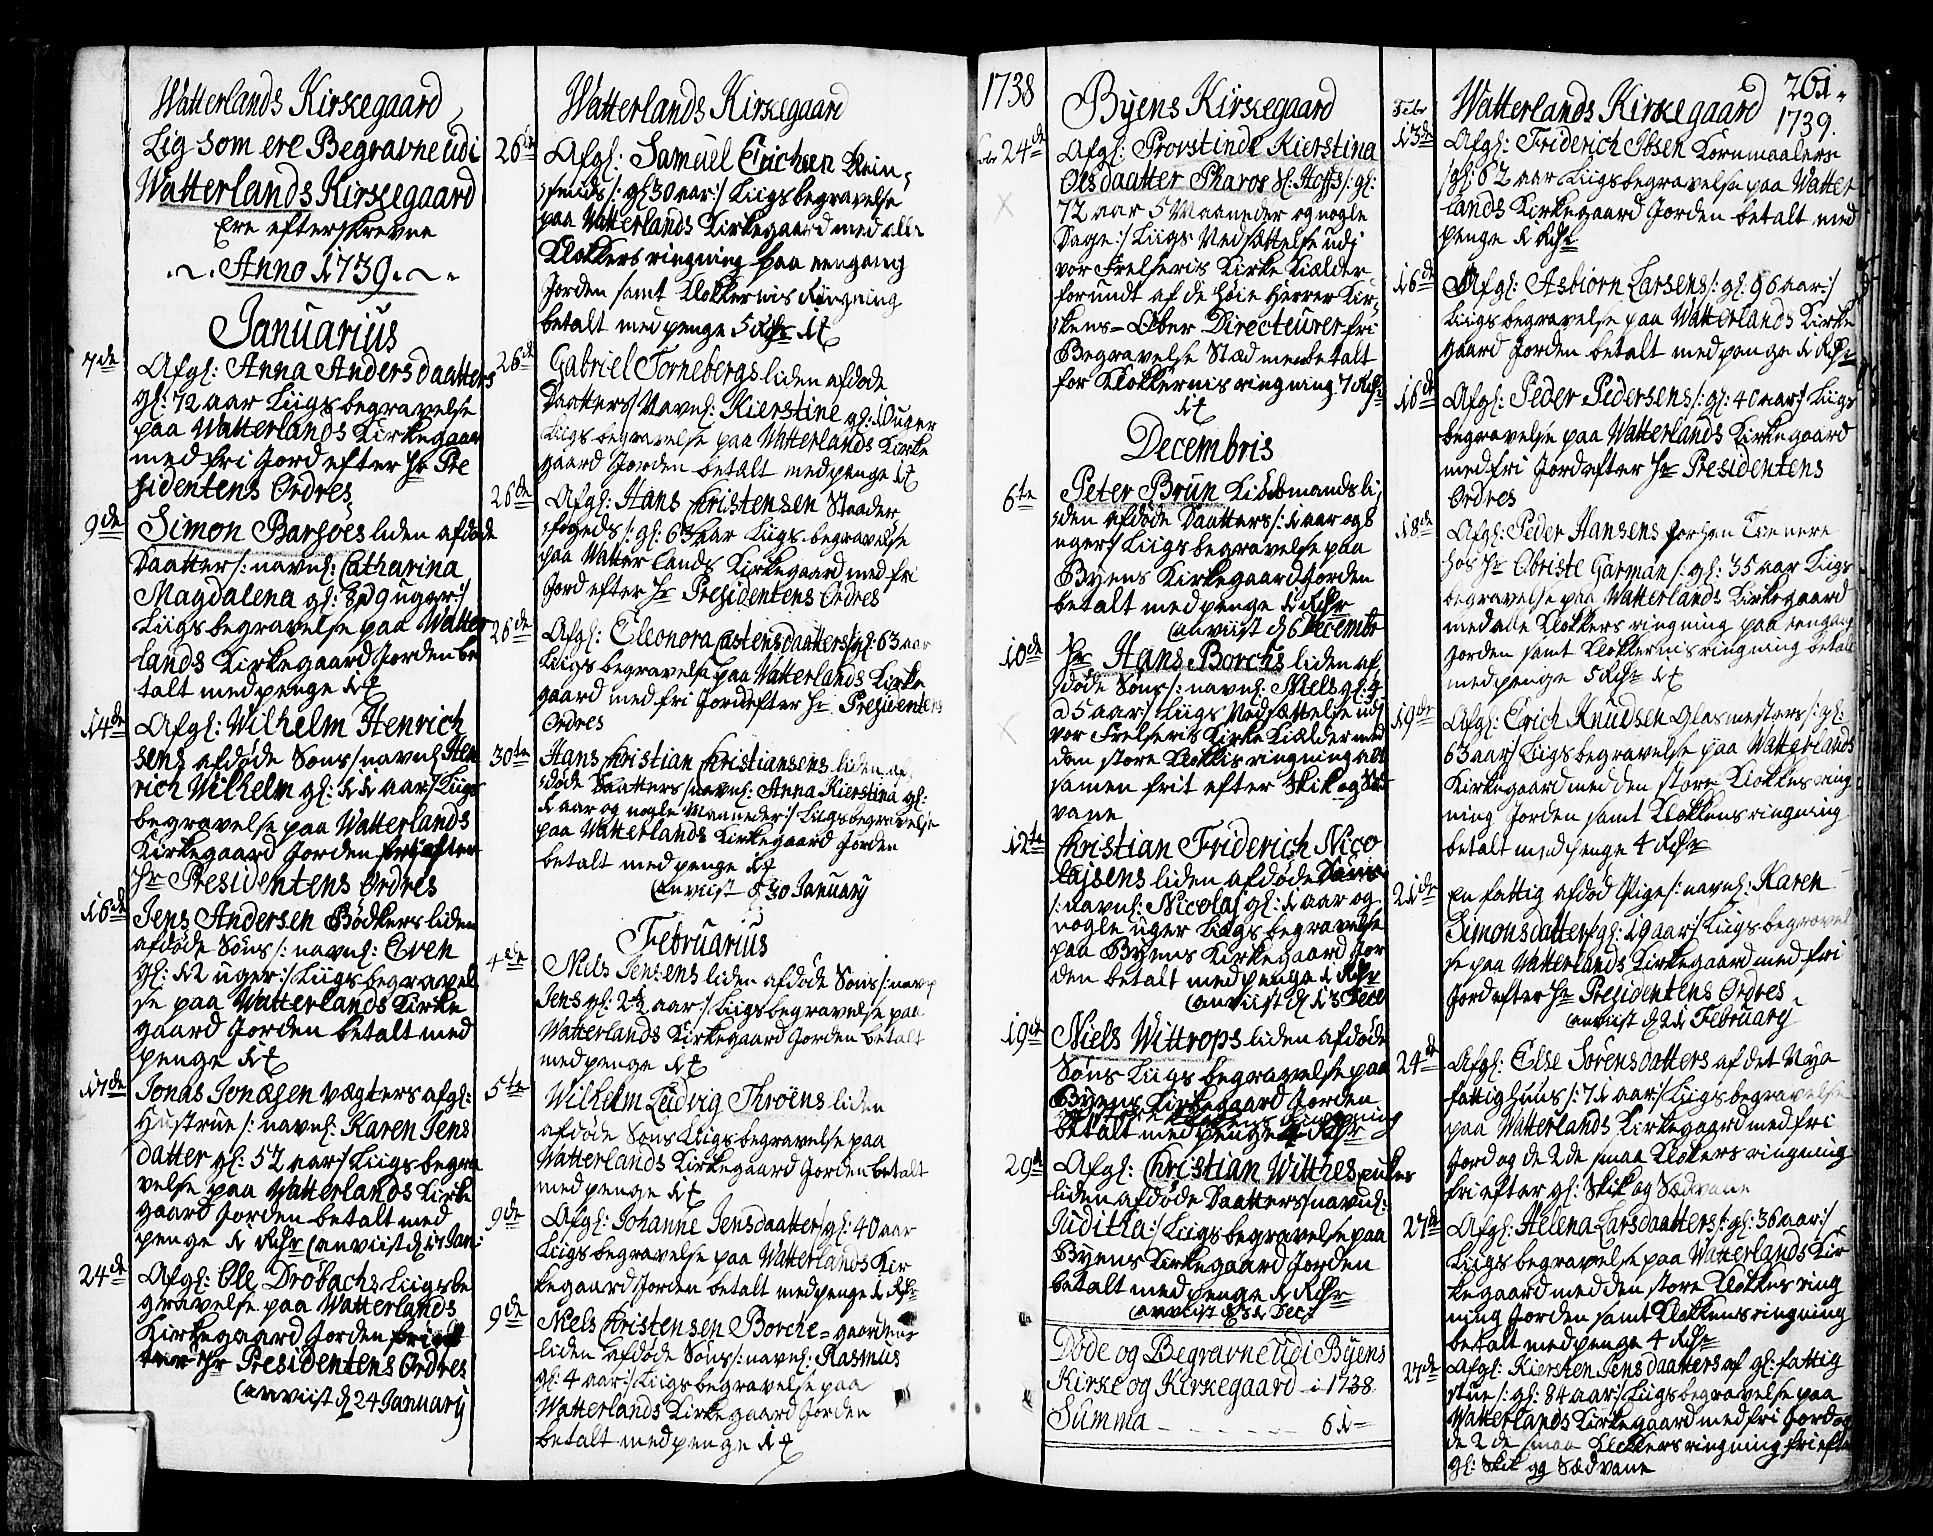 Watterlands Kirkegaard
Lig som ere Begravne udi
Watterlands Kirkegaard
Ere efterskrevne
Anno 1739.
Januarius
7de Afgl: Anna Andersdaatters
gl: 72 aar Liigs begravelse
paa Watterlands Kirkegaar
med fri Jord efter Hr Pre
sidentens Ordres
9de Simon Barsoes liden afdøde
Daatter /: navnl: Catharina
Magdalena gl: uger :/
Liigs begravelse paa Watter
lands Kirkegaard Jorden be
talt med penge
14de Afgl: Wilhelm Henrich
sens afdøde Søns /: navnl: Hen
rich Wilhelm gl: aar :/ Liigs
begravelse paa Watterlands
Kirkegaard Jorden fri efter
Hr Presidentens Ordres
16de Jens Andersen Bødkers liden
afdøde Søns /: navnl: Even
gl: 12 uger :/ Liigs begravel
se paa Watterlands Kirke
gaard Jorden betalt med
penge
17de Jonas Jonasen Vægters afgl:
Hustrue /: navnl: Karen Jens
datter gl: 52 aar :/ Liigs begra
velse paa Watterlands Kirke
gaard Jorden betalt med
penge 1 Rdr anviist d 17 Jan:
24de Afgl: Ole Drøbachs Liigs be
gravelse paa Watterlands
Kirkegaard Jorden fri ef
ter Hr Presidentens Ordres
anviist d 24 January
Watterlands Kirkegaard
26de Afgl: Samuel Erichsen
smeds /: gl: 30 aar :/ Liigs begravelse
paa Watterlands Kirkegaard med alle
Klokkers ringning paa eengang
Jorden samt Klokkernis Ringning
betalt med penge 5 Rdr
26de Gabriel Tornebergs liden afdøde
Daatters /: Navnl: Kierstine gl: 10 uger
Liigs begravelse paa Watterlands Kirke
gaard Jorden betalt med penge
26de Afgl: Hans Christensen Staader
fogeds /: gl: 63 aar Liigs begravelse
paa Watterlands Kirkegaard med fri
Jord efter Hr Presidentens Ordres
26de Afgl: Eleonora Castensdaatters /: gl: 63 aar
Liigs begravelse paa Watterlands Kirke
gaard med fri Jord efter Hr Presidentens
Ordres
30te Hans Christian Christiansens liden af
døde Daatters /: navnl: Anna Kierstina gl:
1 aar og nogle Maaneder :/ Liigs begravelse
paa Watterlands Kirkegaard Jorden
betalt med penge
anviist d 30 January
Februarius
4de Niels Jensens liden afdøde Søns /: navnl
Jens gl: 2½ aar :/ Liigs begravelse paa
Watterlands Kirkegaard Jorden betalt
med penge
5te Wilhelm Ludvig Throens liden
afdøde Søns Liigs begravelse paa
Watterlands Kirkegaard Jorden betalt
med penge
9de Afgl: Johanne Jensdaatter /: gl: 40 aar
Liigs begravelse paa Watterlands Kir
kegaard Jorden betalt med penge 1 Rdr
9de Niels Christensen Borche-gaardens
liden afdøde Søns /: navnl: Rasmus
gl: 4 aar :/ Liigs begravelse paa
Watterlands Kirkegaard Jorden
betalt med penge
1738 Byens Kirkegaard
24de Afgl: Provstinde Kierstina
Olsdaatter Pharos Sl: Hoffs /: gl:
72 aar 5 Maaneder og nogle
Dage :/ Liigs Nedsættelse udj
vor Frelseris Kirke Kiælder
forundt af de Høie Herrer Kir
kens Ober Directeurer fri
Begravelse Stæd men betalt
for Klokkernis ringning 7 Rdr
Decembris
6te Peter Brun Kiøbmands li
den afdøde Daatters /: 1 aar og
uger :/ Liigs begravelse paa
Byens Kirkegaard Jorden
betalt med penge 1 Rdr
anviist d 6 Decembr
10de Hr Hans Borchs liden af
døde Søns /: navnl: Niels gl: 4
a 5 aar :/ Liigs Nedsættelse udj
vor Frelseris Kirke Kiælder med
den store Klokkis ringning alt
samen frit efter Skik og Sæd
vane
12te Christian Friderich Nico
lajsens liden afdøde Søns
/: navnl: Nicolaj gl: 1 aar og
nogle uger Liigs begravelse
paa Byens Kirkegaard Jor
den betalt med penge 1 Rdr
anviist d 13 Dec
19de Niels Wittrops liden afdøde
Søns Liigs begravelse paa
Byens Kirkegaard Jorden
ringning
betalt med penge 4 Rdr
29de Afgl: Christian Witthes
liden afdøde Daatters /: navnl:
Juditha :/ Liigs begravelse paa
Byens Kirkegaard Jorden
betalt med penge 1 Rdr
anviist d 31 Dec:
Døde og Begravne udi Byens
Kirke og Kirkegaard i 1738
Summa 61
261
Watterlands Kirkegaard 1739.
Febr
13de Afgl: Friderich Ibsen Kornmaalers
/: gl: 62 aar Liigs begravelse paa Watter
lands Kirkegaard Jorden betalt med
penge 1 Rdr
16de Afgl: Asbiørn Larsens /: gl: 96 aar :/
Liigs begravelse paa Watterlands Kirke
gaard Jorden betalt med penge 1 Rdr
16de Afgl: Peder Pedersens /: gl: 40 aar :/ Liigs
begravelse paa Watterlands Kirkegaard
med fri Jord efter Hr Presidentens
Ordres
18de Afgl: Peder Hansens forhen Tienere
hos Hr Obriste Garman /: gl: 35 aar Liigs
begravelse paa Watterlands Kirkegaard
med alle Klokkers ringning paa eengang
Jorden samt Klokkernis ringning betalt
med penge 5 Rdr
19de Afgl: Erich Knudsen Glasmesters /: gl:
63 aar :/ Liigs begravelse paa Watterlands
Kirkegaard med den store Klokkes ring
ning Jorden samt Klokkens ringning
betalt med penge 4 Rdr
21de En fattig afdød Pige /: navnl: Karen
Simonsdatter /: gl: 19 aar :/ Liigs begravel
se paa Watterlands Kirkegaard med fri
Jord efter Hr Presidentens Ordres
anviist d 21 February
24de Afgl: Else Sørensdatters af det Nye
fattighuus /: 71 aar :/ Liigs begravelse
paa Watterlands Kirkegaard med fri
Jord og de 2de smaa Klokkers ringning
fri efter gl: Skik og Sædvane
27de Afgl: Helena Larsdaatters /: gl: 36 aar :/
Liigs begravelse paa Watterlands Kir
kegaard med den store Klokkes ring
ning Jorden samt Klokkens ringning
betalt med penge 4 Rdr
27de Afgl: Kiersten Jensdaatters af gl: fattig
stue /: gl: 84 aar :/ Liigs begravelse paa
Watterlands Kirkegaard med fri Jord og
de 2de smaa Klokkers ringning fri efter
gl: Skik og Sædvane